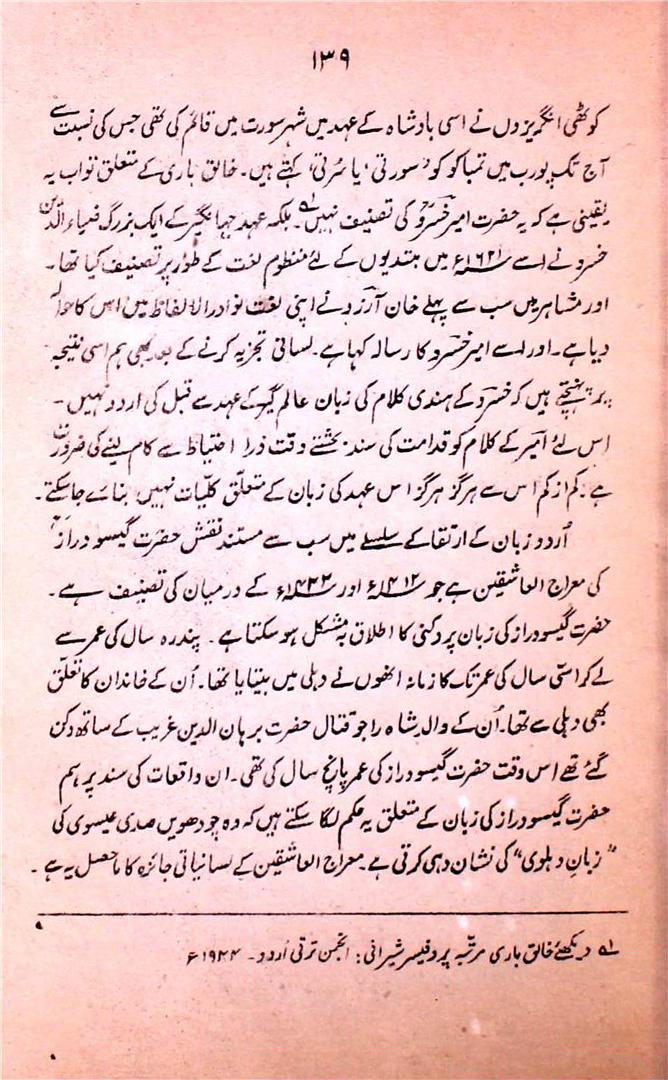 ۱۳۹
کوٹھی انگریزوں نے اسی بادشاہ کے عہد میں شہر سورت میں قائم کی تھی جس کی نسبت سے
آج تک پورب میں تمباکو کو "سورتی' یا سُرتی' کہتے ہیں۔ خالق باری کے متعلق تو اب یہ
یقینی ہے کہ یہ حضرت امیر خسروؔ کی تصنیف نہیں ۱ے۔ بلکہ عہد جہانگیر کے ایک بزرگ ضیاء الدین
خسرو نے اسے ۱۶۲۱ء میں ہندیوں کے لئے منظوم لغت کے طور پر تصنیف کیا تھا۔
اور مشاہیر میں سب سے پہلے خان آرزو نے اپنی لغت نوادر الالفاظ میں اس کا حوالہ
دیا ہے۔ اور اسے امیر خسرو کا رسالہ کہا ہے۔ لسانی تجزیہ کرنے کے بعد بھی ہم اسی نتیجہ
پر پہنچتے ہیں کہ خسروؔ کے ہندی کلام کی زبان عالم گیر کے عہد سے قبل کی اردو نہیں۔
اس لئے امیر کے کلام کو قدامت کی سند بخشتے وقت ذرا احتیاط سے کام لینے کی ضرورت
ہے۔ کم از کم اس سے ہرگز ہرگز اس عہد کی زبان کے متعلق کلیّات نہیں بنائے جا سکتے۔
اُردو زبان کے ارتقا کے سلسلے میں سب سے مستند نقش حضرت گیسو درازؒ
کی معراج العاشقین ہے جو ۱۴۱۲ء اور ۱۴۲۲ء کے درمیان کی تصنیف ہے۔
حضرت گیسو دراز کی زبان پر دکنی کا اطلاق بہ مشکل ہو سکتا ہے۔ پندرہ سال کی عمر سے
لے کر اسّی سال کی عمر تک کا زمانہ انھوں نے دہلی میں بِتایا تھا۔ اُن کے خاندان کا تعلّق
بھی دہلی سے تھا۔ اُن کے والد شاہ راجو قتال حضرت برہان الدین غریب کے ساتھ دکن
گئے تھے اس وقت حضرت گیسو دراز کی عمر پانچ سال کی تھی۔ ان واقعات کی سند پر ہم
حضرت گیسو دراز کی زبان کے متعلق یہ حکم لگا سکتے ہیں کہ وہ چودھویں صدی عیسوی کی
"زبانِ دہلوی" کی نشان دہی کرتی ہے۔ معراج العاشقین کے لسانیاتی جائزہ کا ماحصل یہ ہے۔
۱ے دیکھئے خالق باری مرتّبہ پروفیسر شیرانی: انجمن ترقی اُردو۔ ۱۹۴۴ء